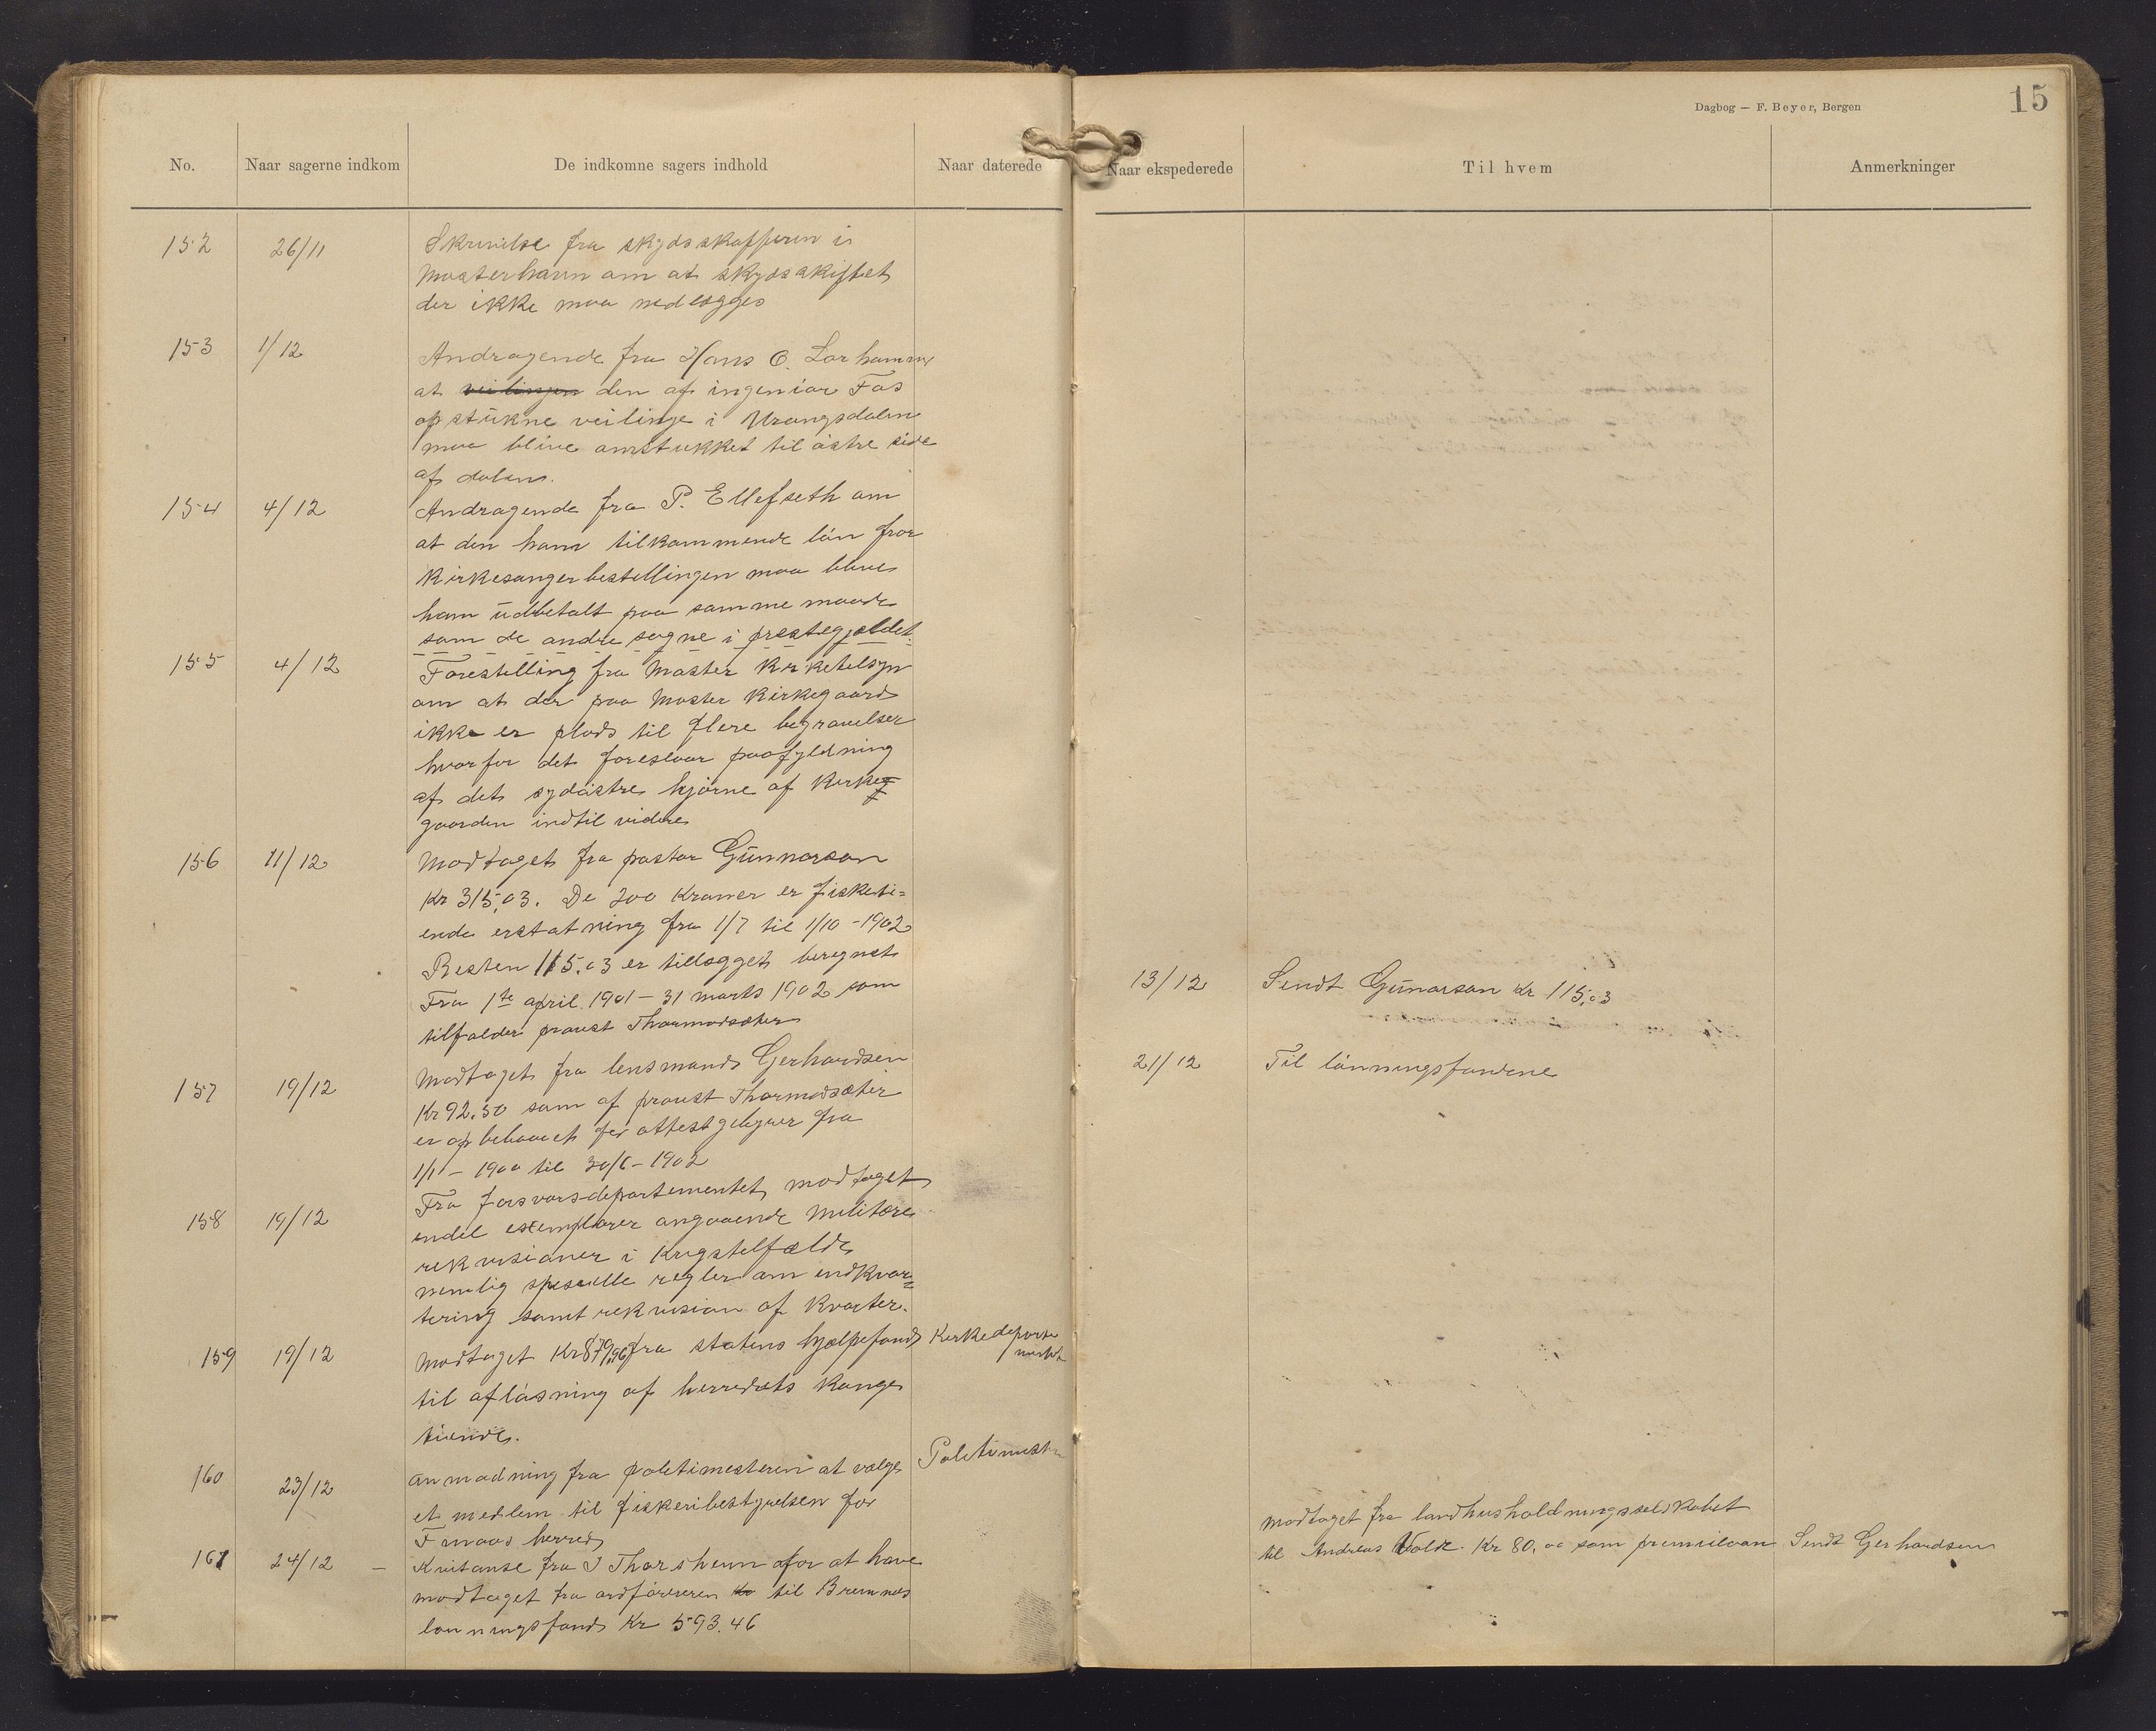 Dagbog — F. Beyer, Bergen
15
No.
Naar sagerne indkom
De indkomne sagers indhold
Naar daterede
Naar ekspederede
Til hvem
Anmerkninger
152 26/11 Skrivelse fra skydsskafferen i
Mosterhavn om at skydsskiftet
der ikke maa nedlægges
153 1/12 Andragende fra Hans O.
at veilinjen den af ingeniør Fos
opstukne veilinje i Vrangsdalen
maa blive omstukket til østre side
af dalen.
154 4/12 Andragende fra P. Ellefseth om
at den ham tilkommende løn for
kirkesangerbestillingen maa blive
ham udbetalt paa samme maade
som de andre sogne i prestegjældet.
155 4/12 Forestilling fra Moster Kirketilsyn
om at der paa Moster Kirkegaard
ikke er plads til flere begravelser
hvorfor det foreslaar paafyldning
af det sydøstre hjørne af Kirkeg=
gaarden indtil videre
156 11/12 Modtaget fra pastor Gunnarson
Kr 315,03. De 200 Kroner er fisketi=
ende erstatning fra 1/7 til 1/10 - 1902
Resten 115.03 er tillægget beregnet
Fra 1te april 1901 - 31 marts 1902 som
tilfalder provst Thormodsæter
13/12 Sendt Gunarson Kr 115,03
157 19/12 Modtaget fra lensmand Gerhardsen
Kr 92.50 som af provst Thormodsæter
er opbebaaret for attestgebyrer fra
1/1 - 1900 til 30/6 - 1902
21/12 Til lønningsfondene
158 19/12 Fra forsvarsdepartementet modtaget
endel exemplarer angaaende militære
rekvisioner i krigstilfælde
nemlig spesielle regler om indkvar=
tering samt rekvision af kvarter.
159 19/12 Modtaget Kr 879,96 fra statens hjælpefond Kirkedeparte
mentet
til afløsning af herredets konge
tiende.
160 23/12 Anmodning fra politimesteren at vælge Politimester
et medlem til fiskeribestyrelsen for
Finnaas herred
161 24/12 — Kvitanse fra J Thorsheim for at have
modtaget fra ordføreren til Bremnes
lønningsfond Kr 593.46
modtaget fra landhusholdningsselskabet
til Andreas Kr 80,00 som premielaan Sendt Gerhardsen